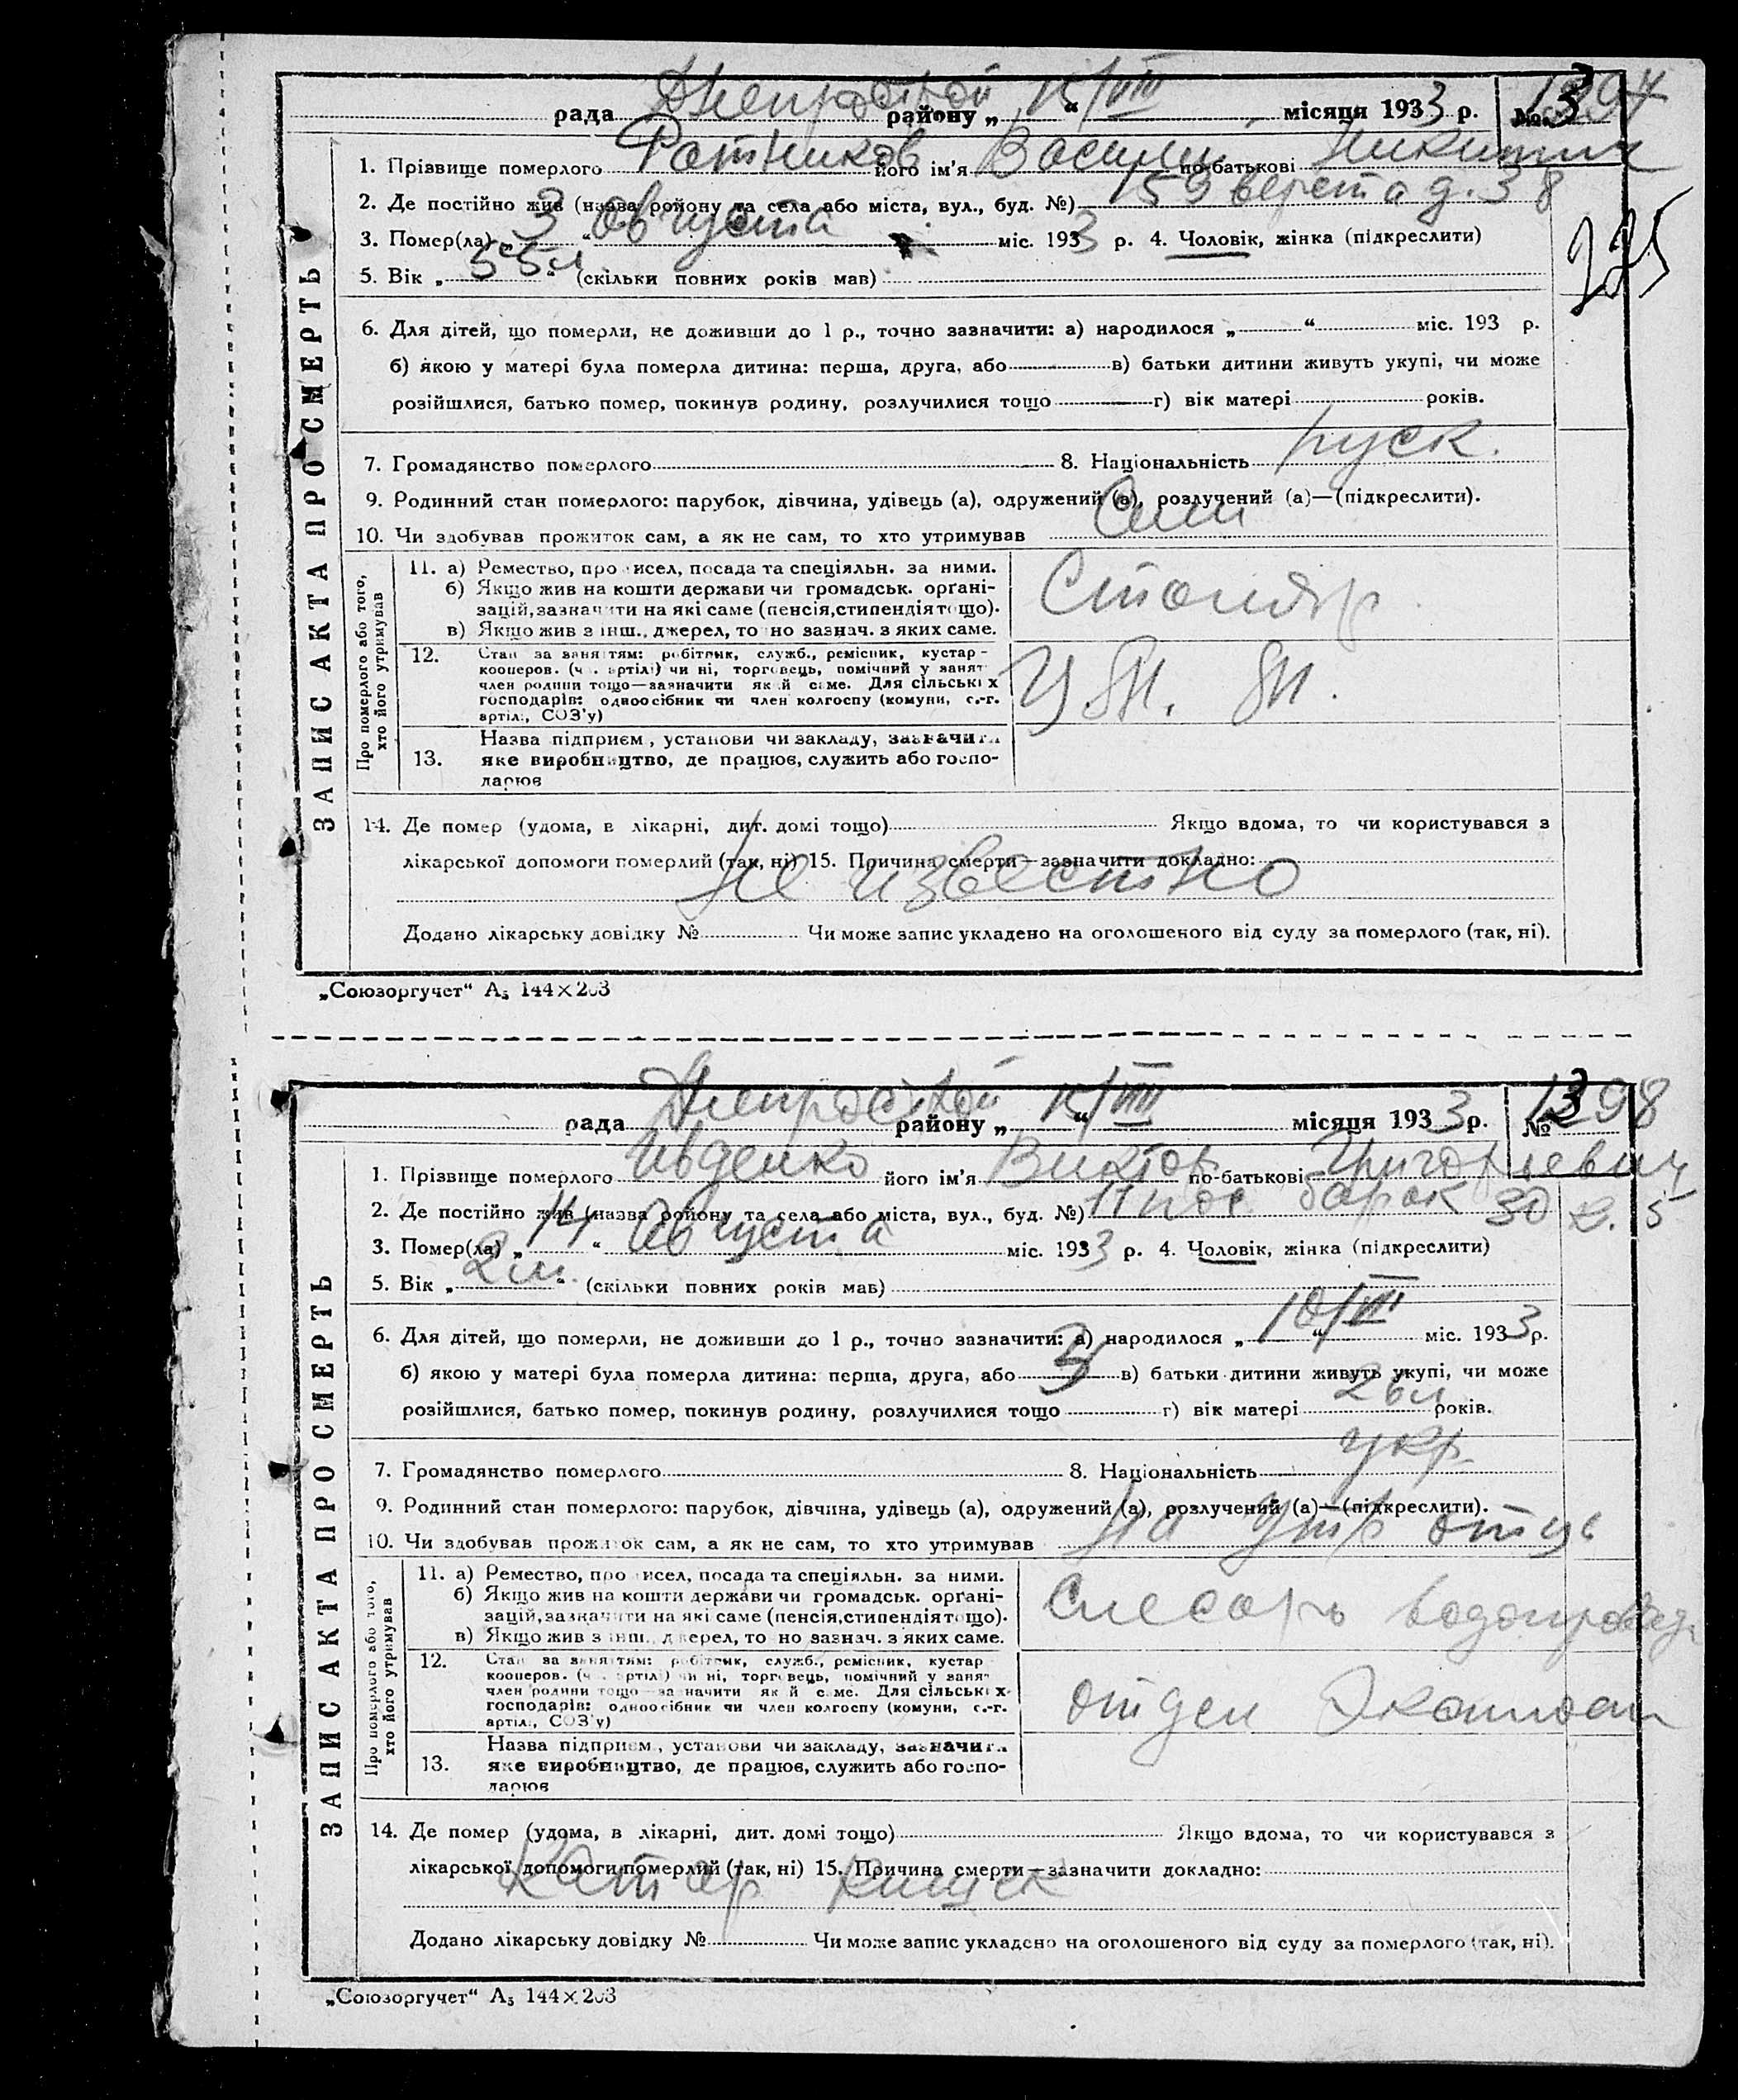 Днепрострой 15/VIII
рада района „ “ місяця 1933 р. №
1. Прізвище померлого Ратников його ім'я Василий по-батькові Никитич
2. Де постійно жив (назва району та села або міста, вул., буд. №) 159 верста д. 38
3. Помер(ла) „3“ Августа міс. 1933 р. 4. Чоловік, жінка (підкреслити)
225
5. Вік „55л“ (скільки повних років мав)
6. Для дітей, що померли, не доживши до 1 р., точно зазначити: а) народилося „ “ міс. 193 р.
б) якою у матері була померла дитина: перша, друга, або в) батьки дитини живуть укупі, чи може
розійшлися, батько помер, покинув родину, розлучилися тощо г) вік матері років.
7. Громадянство померлого 8. Національність руск.
9. Родинний стан померлого: парубок, дівчина, удівець (а), одружений (а), розлучений (а)—(підкреслити).
10. Чи здобував прожиток сам, а як не сам, то хто утримував
ЗАПИС АКТА ПРО СМЕРТЬ
Про померлого або того, хто його утримував
11. а) Ремество, промисел, посада та спеціяльн. за ними.
б) Якщо жив на кошти держави чи громадськ. органі-
зацій, зазначити на які саме (пенсія, стипендія тощо).
в) Якщо жив з інш. джерел, точно зазнач. з яких саме.
Столяр
12. Стан за заняттям: робітник, служб., ремісник, кустар-
кооперов. (ч. артілі) чи ні, торговець, помічний у занят
член родини тощо—зазначити який саме. Для сільських
господарів: одноосібник чи член колгоспу (комуни, с.-г.
артілі, СОЗ'у)
13. Назва підприєм., установи чи закладу, зазначити
яке виробництво, де працює, служить або госпо-
дарює
14. Де помер (удома, в лікарні, дит. домі тощо) Якщо вдома, то чи користувався з
лікарської допомоги померлий (так, ні) 15. Причина смерти—зазначити докладно:
Не известно
Додано лікарську довідку № Чи може запис укладено на оголошеного від суду за померлого (так, ні).
„Союзоргучет“ А5 144×203
Днепрострой 15/VIII
рада району „ “ місяця 1933 р. №
1. Прізвище померлого Ивденко його ім'я Виктор по-батькові Григорьевич
2. Де постійно жив (назва району та села або міста, вул., буд. №) 11 пос барак 30 к. 5
3. Помер(ла) „14“ Августа міс. 1933 р. 4. Чоловік, жінка (підкреслити)
5. Вік „2 м.“ (скільки повних років мав)
6. Для дітей, що померли, не доживши до 1 р., точно зазначити: а) народилося „ “ міс. 1933 р.
б) якою у матері була померла дитина: перша, друга, або 3 в) батьки дитини живуть укупі, чи може
розійшлися, батько помер, покинув родину, розлучилися тощо г) вік матері 26л років.
7. Громадянство померлого 8. Національність укр.
9. Родинний стан померлого: парубок, дівчина, удівець (а), одружений (а), розлучений (а)—(підкреслити).
10. Чи здобував прожиток сам, а як не сам, то хто утримував На утр отца
ЗАПИС АКТА ПРО СМЕРТЬ
Про померлого або того, хто його утримував
11. а) Ремество, промисел, посада та спеціяльн. за ними.
б) Якщо жив на кошти держави чи громадськ. органі-
зацій, зазначити на які саме (пенсія, стипендія тощо).
в) Якщо жив з інш. джерел, точно зазнач. з яких саме.
Слесарь водопровод
12. Стан за заняттям: робітник, служб., ремісник, кустар
кооперов. (ч. артілі) чи ні, торговець, помічний у занят
член родини тощо—зазначити який саме. Для сільських
господарів: одноосібник чи член колгоспу (комуни, с.-г.
артілі, СОЗ'у)
отдел
13. Назва підприєм., установи чи закладу, зазначити
яке виробництво, де працює, служить або госпо-
дарює
14. Де помер (удома, в лікарні, дит. домі тощо) Якщо вдома, то чи користувався з
лікарської допомоги померлий (так, ні) 15. Причина смерти—зазначити докладно:
Катар кишек
Додано лікарську довідку № Чи може запис укладено на оголошеного від суду за померлого (так, ні).
„Союзоргучет“ А5 144×203